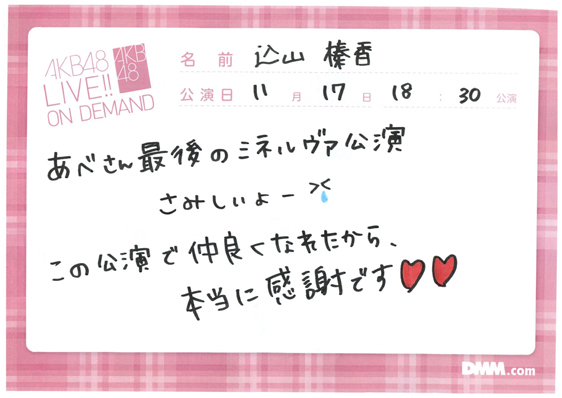 AKB48
LIVE!!
ON DEMAND
AKB
48
名前 込山 榛香
公演日 11月 17日 18:30 公演
あべさん最後のミネルヴァ公演
さみしいよー
この公演で仲良くなれたから、
本当に感謝です
DMM.com